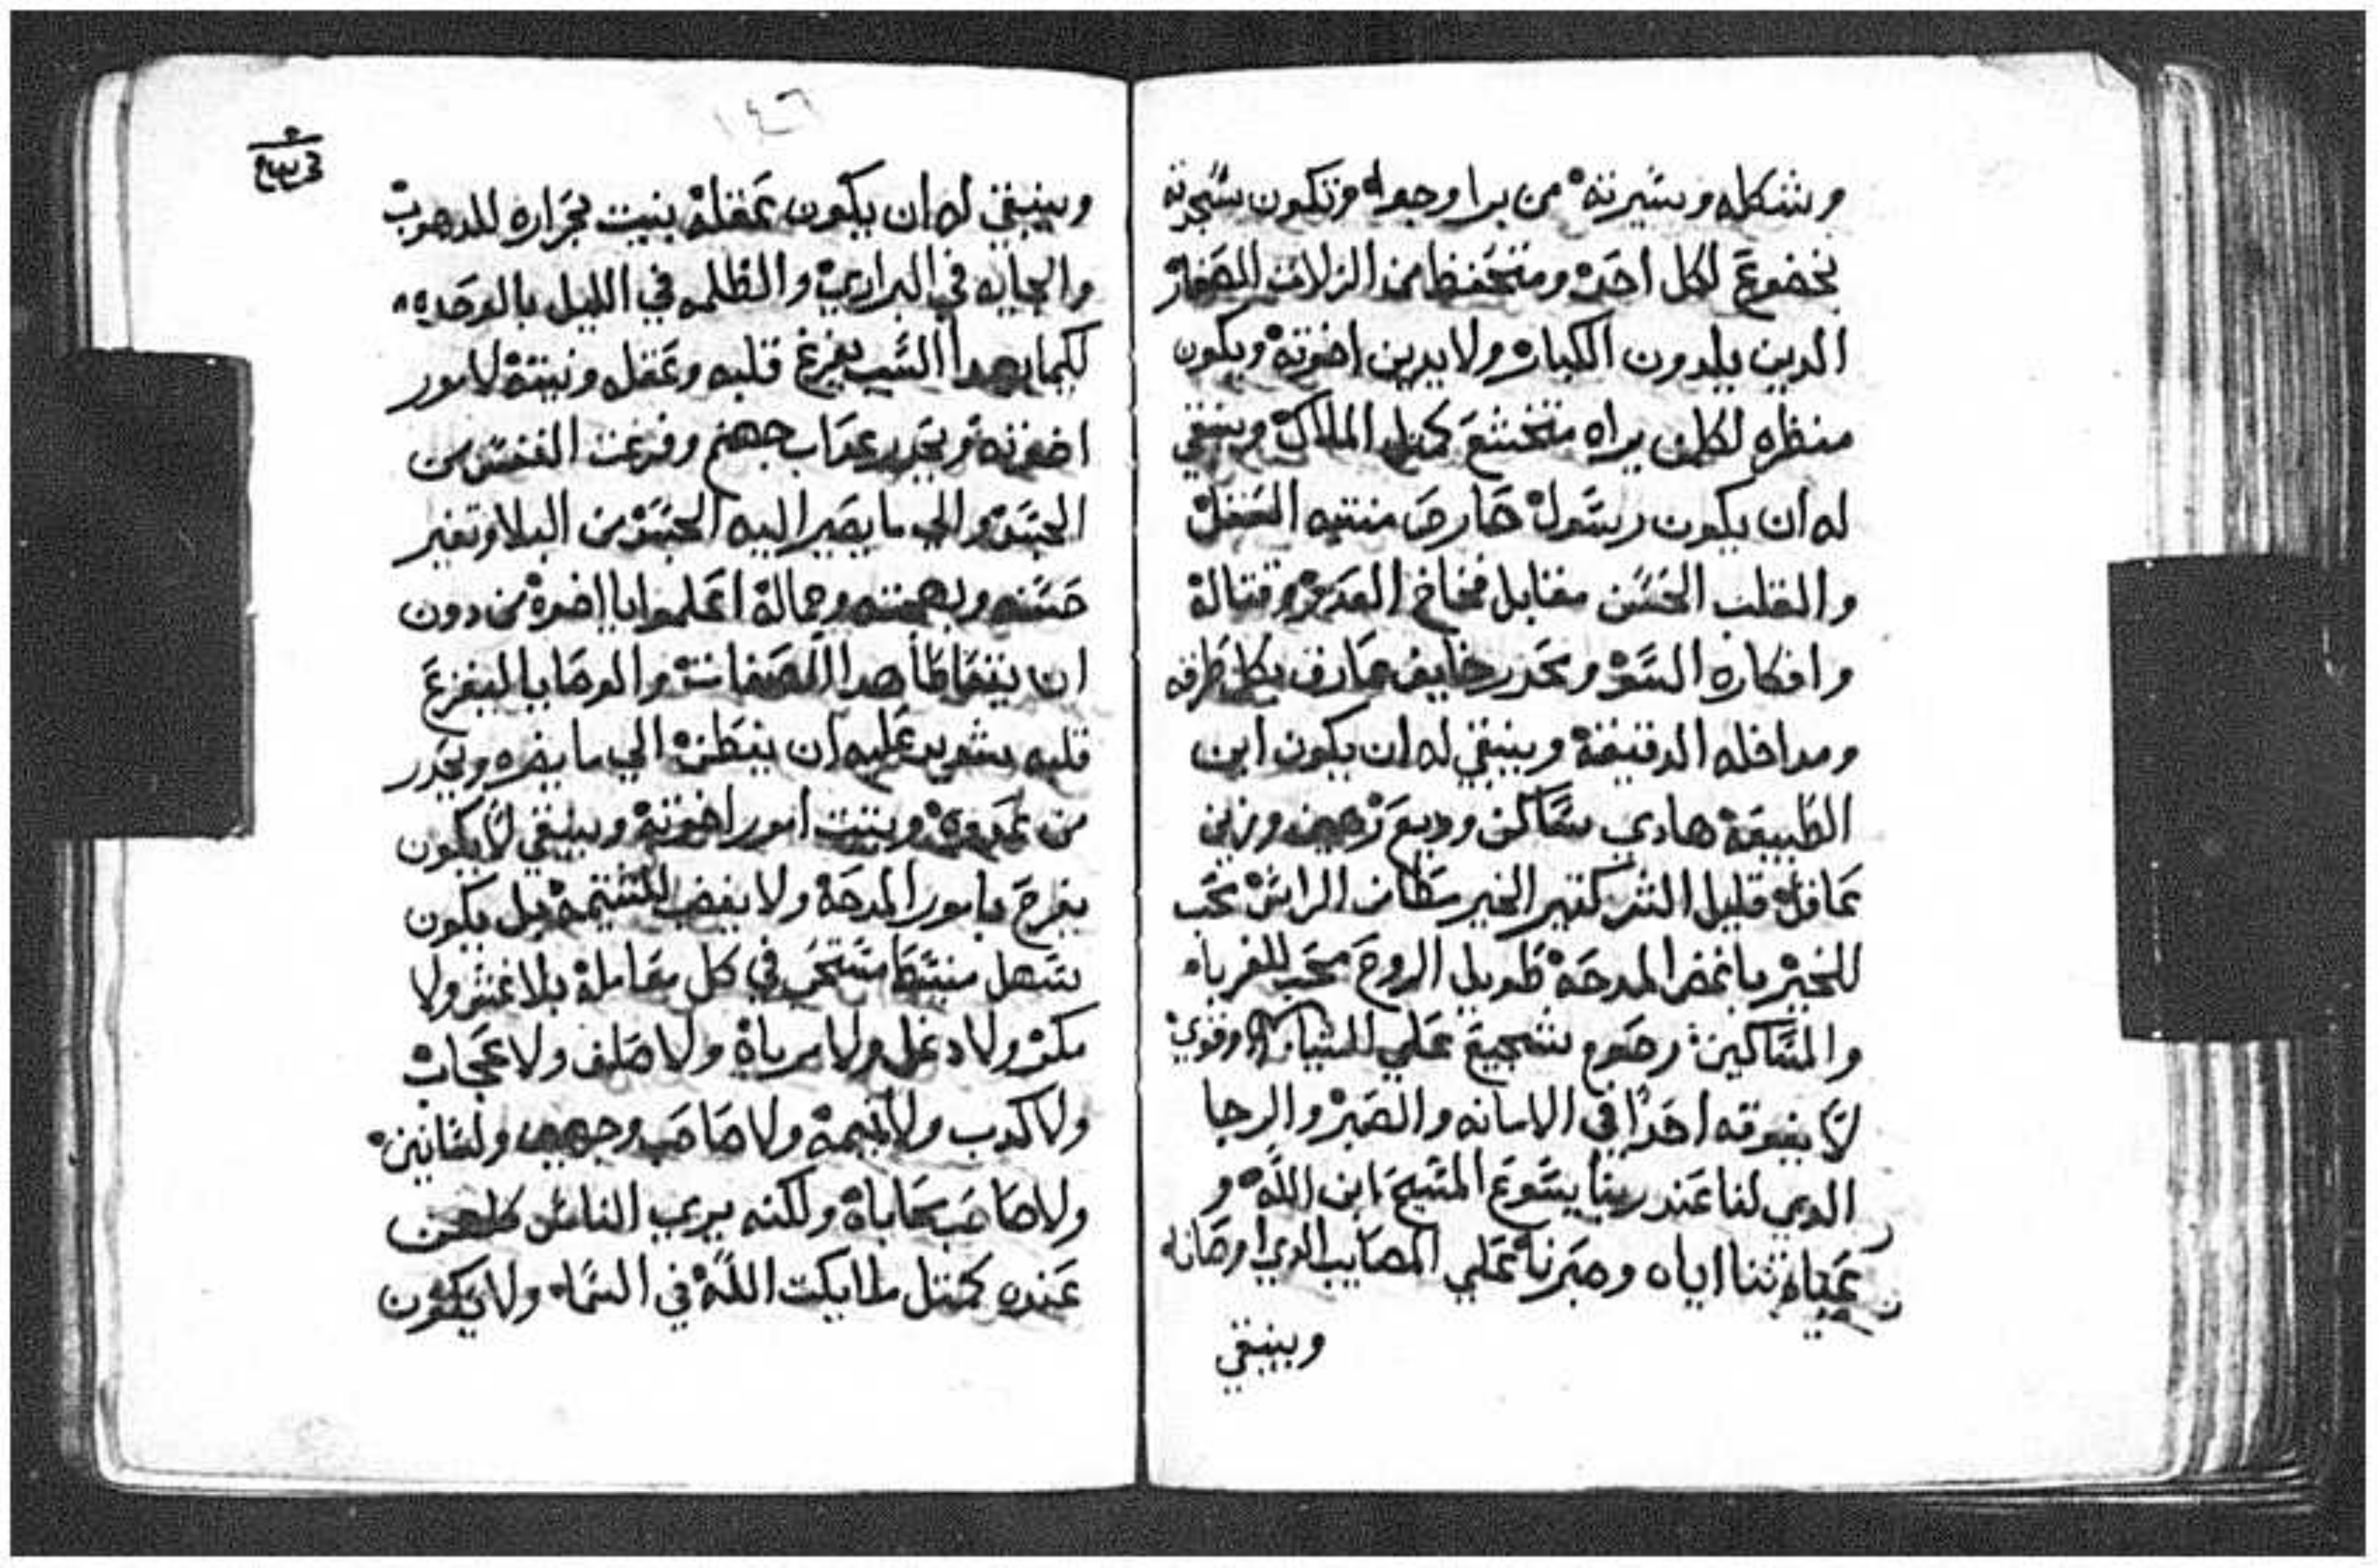 وشكله وسيرته من برا وجوا وتكون سجدته
بخضوع لكل احد ومتحفظ من الزلات الصغار
الدين يلدون الكبار ولا يدين اخوته ويكون
منظره لكلمن يراه متخشع كمثل الملاك وينبغي
له ان يكون رسول حارص منتبه العقل
والقلب الحسن مقابل فخاخ العدو وقتاله
وافكاره السو ويحدر خايف عارف بكل طرقه
ومداخله الدقيقة وينبغي له ان يكون ابن
الطبيعة هادي ساكن وديع رهين ورزين
عاقل قليل الشر كتير الخير مطاطي الراس محب
للخير باغض المدحة طويل الروح محب للغرباء
والمساكين رضوع شجيع علي الشياطين وقوي
لا يفوقه احدا في الامانه والصبر والرجا
الدي لنا عند ربنا يسوع المسيح ابن الله و
ثنا اياه وصبرنا علي المصايب الدي اوصانا
وينبغي
١٤٦
وينبغي له ان يكون عقله بنيت بحراره للدهوب
والجايه في البراري والظلمه في الليل بالوحده
لكيما بهدا السبب يفرغ قلبه وعقله ونيته لامور
اخوته ويحدر عداب جهنم وفرغت النفس من
الجسد والي ما يصير اليه الجسد من البلا وتغير
حسنه وبهجته وجماله اعلموا يا اخوه من دون
ان يتعاطا هدا الصفات والوصايا ليفرغ
قلبه عليه ان يفطن الي ما يضره ويحدر
من عدوه وبيت امور اخوته وينبغي لا يكون
يفرح بامور المدحة ولا يغضب للشتيمة بل يكون
سهل منبسط مستحي في كل معاملة بلا غش ولا
مكر ولا دغل ولا مرياة ولا صلف ولا عجاب
ولا كدب ولا نميمة ولا صاحب وجهين ولسانين
ولا صاحب محاباة ولكنه يري الناس كلهم
عنده كمتل ملايكت الله في السماء ولا يكون